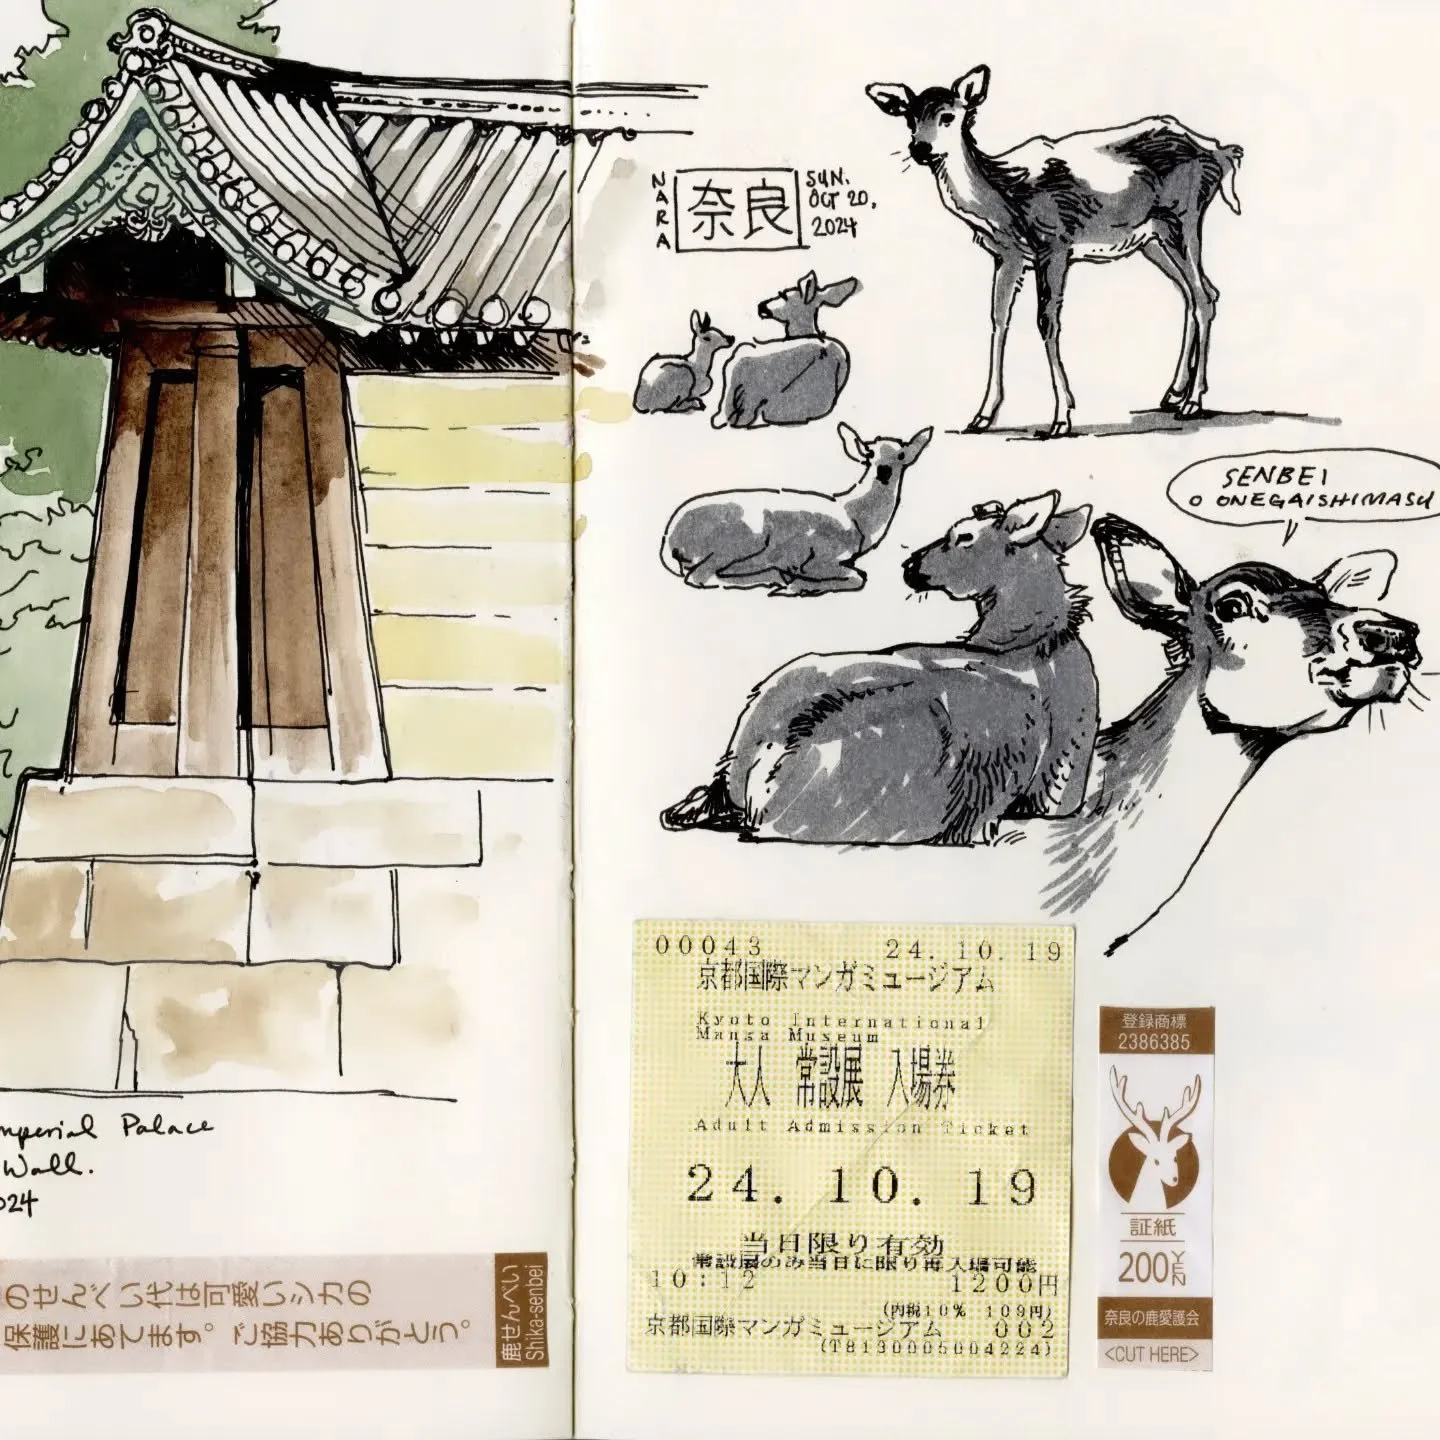 NARA
奈良
SUN.
OCT 20,
2024
SENBEI
O ONEGAISHIMASU
Imperial Palace
Wall.
2024
のせんべい代は可愛いシカの
保護にあてます。ご協力ありがとう。
鹿せんべい
Shika-senbei
00043 24.10.19
京都国際マンガミュージアム
Kyoto International
Manga Museum
大人 常設展 入場券
Adult Admission Ticket
24.10.19
当日限り有効
常設展のみ当日に限り再入場可能
10:12 1200円
(内税10% 109円)
京都国際マンガミュージアム 002
(T8130005004224)
登録商標
2386385
証紙
200YEN
奈良の鹿愛護会
<CUT HERE>